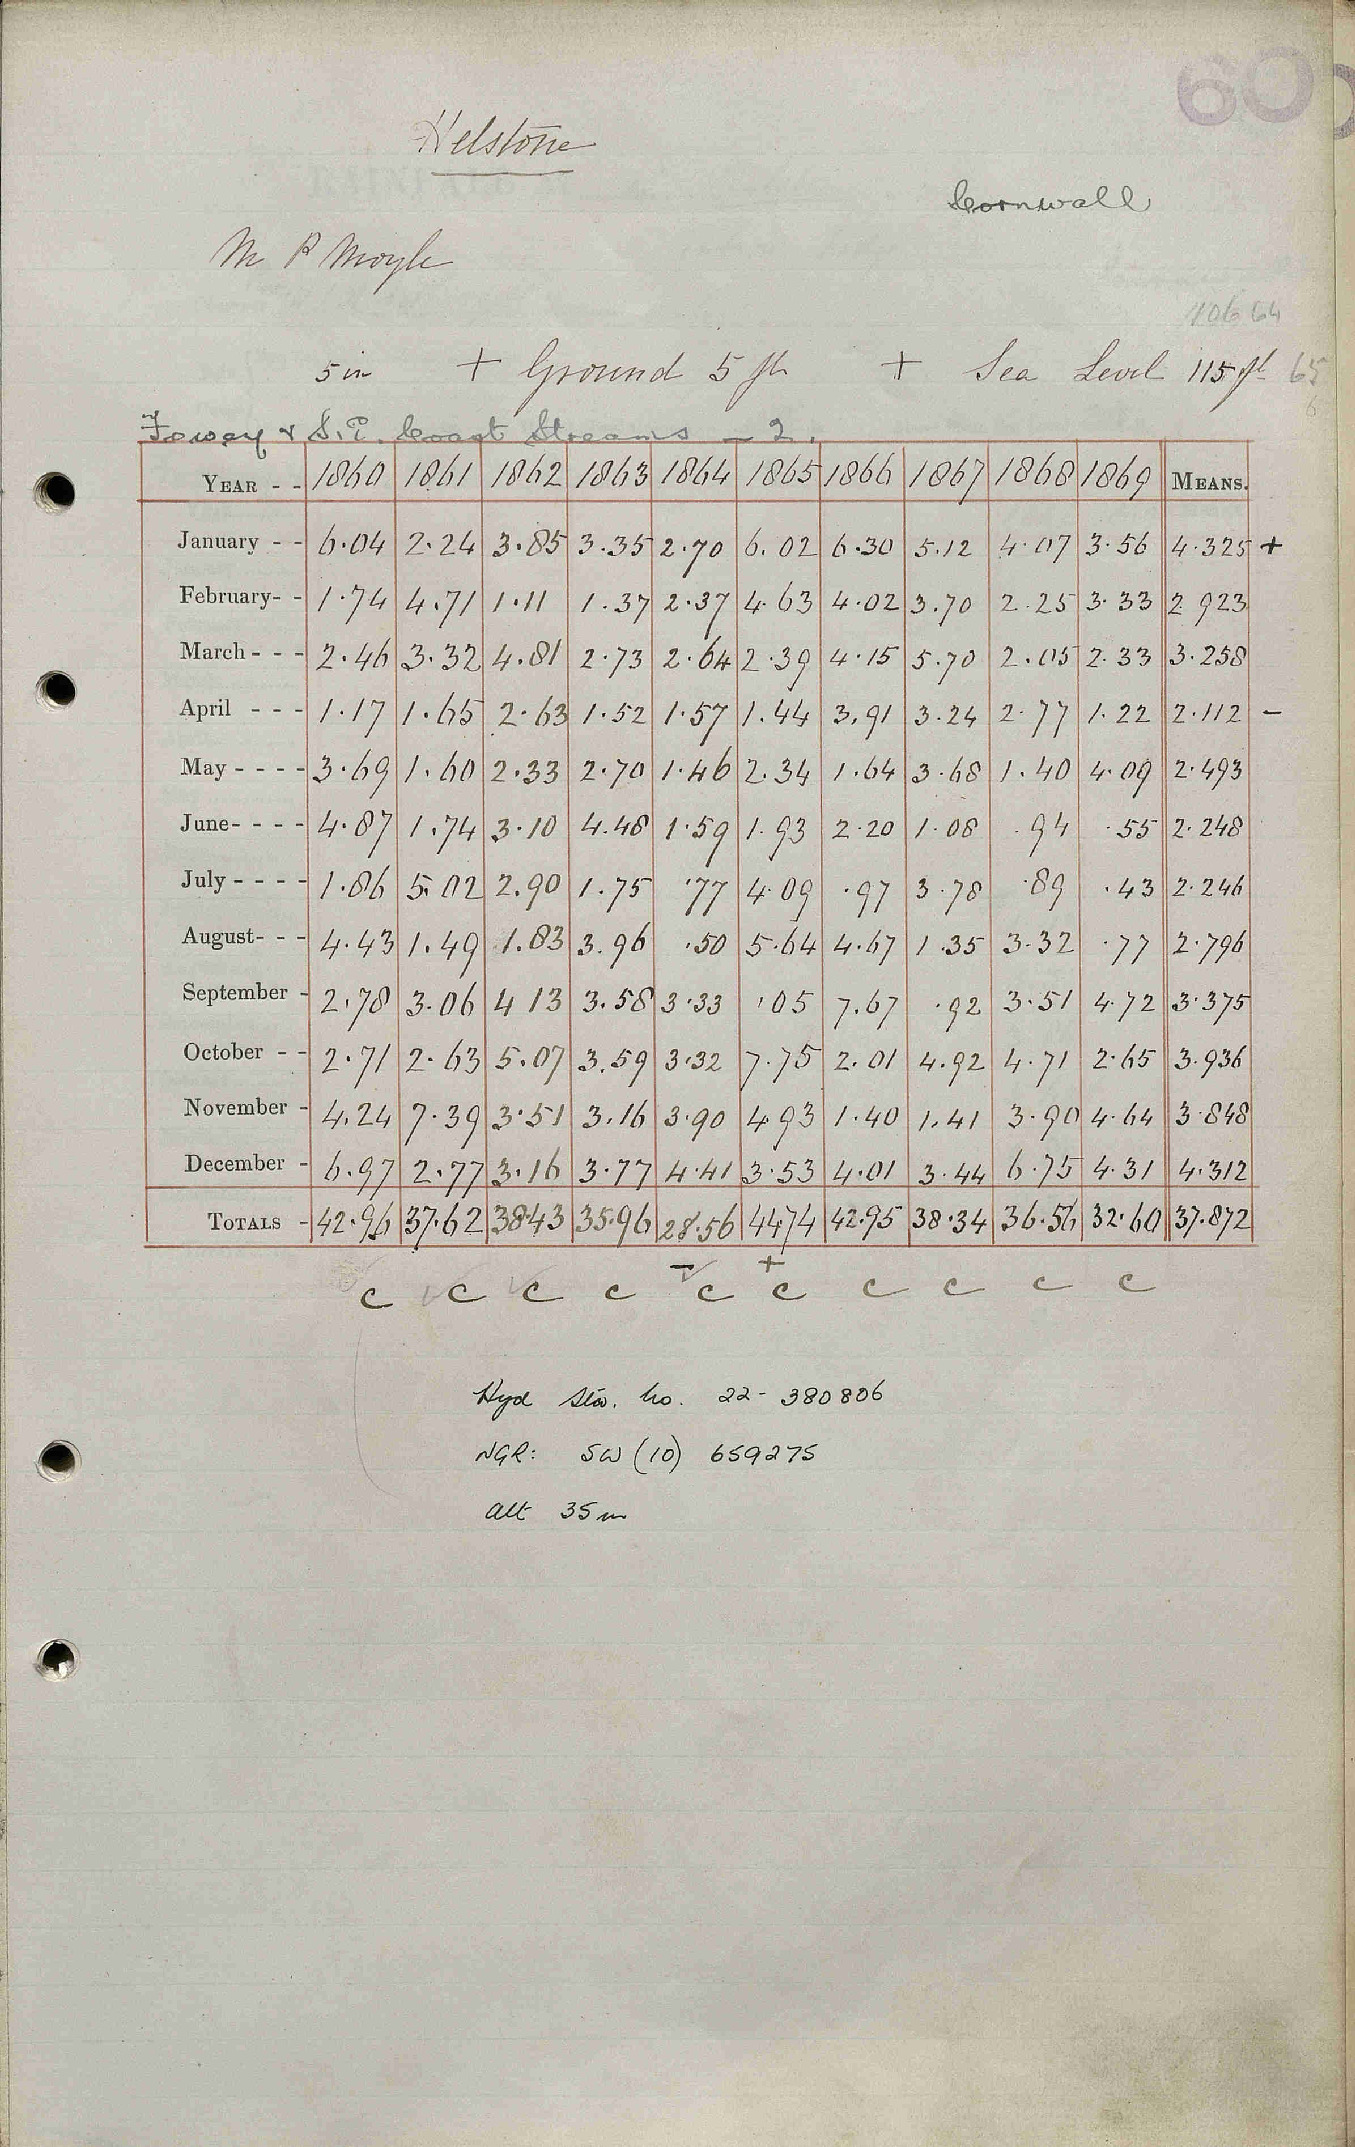 60
Helstone
Cornwall
M P Moyle
10664
5 in + Ground 5 ft + Sea Level 115 ft 65
6
Fowey & S.E. Coast Streams - 2.
YEAR - - 1860 1861 1862 1863 1864 1865 1866 1867 1868 1869 MEANS.
January - - 6.04 2.24 3.85 3.35 2.70 6.02 6.30 5.12 4.07 3.56 4.325 +
February- - 1.74 4.71 1.11 1.37 2.37 4.63 4.02 3.70 2.25 3.33 2 923
March - - - 2.46 3.32 4.81 2.73 2.64 2.39 4.15 5.70 2.05 2.33 3.258
April - - - 1.17 1.65 2.63 1.52 1.57 1.44 3.91 3.24 2.77 1.22 2.112 -
May - - - - 3.69 1.60 2.33 2.70 1.46 2.34 1.64 3.68 1.40 4.09 2.493
June- - - - 4.87 1.74 3.10 4.48 1.59 1.93 2.20 1.08 .94 .55 2.248
July - - - - 1.86 5.02 2.90 1.75 .77 4.09 .97 3.78 .89 .43 2.246
August- - - 4.43 1.49 1.83 3.96 .50 5.64 4.67 1.35 3.32 .77 2.796
September - 2.78 3.06 4 13 3.58 3.33 .05 7.67 .92 3.51 4.72 3.375
October - - 2.71 2.63 5.07 3.59 3.32 7.75 2.01 4.92 4.71 2.65 3.936
November - 4.24 7.39 3.51 3.16 3.90 4.93 1.40 1.41 3.90 4.64 3.848
December - 6.97 2.77 3.16 3.77 4.41 3.53 4.01 3.44 6.75 4.31 4.312
TOTALS - 42.96 37.62 38.43 35.96 28.56 44.74 42.95 38.34 36.56 32.60 37.872
- +
c c c c c c c c c c
Hyd Stn. No. 22- 380806
NGR: SW (10) 659275
Alt 35m